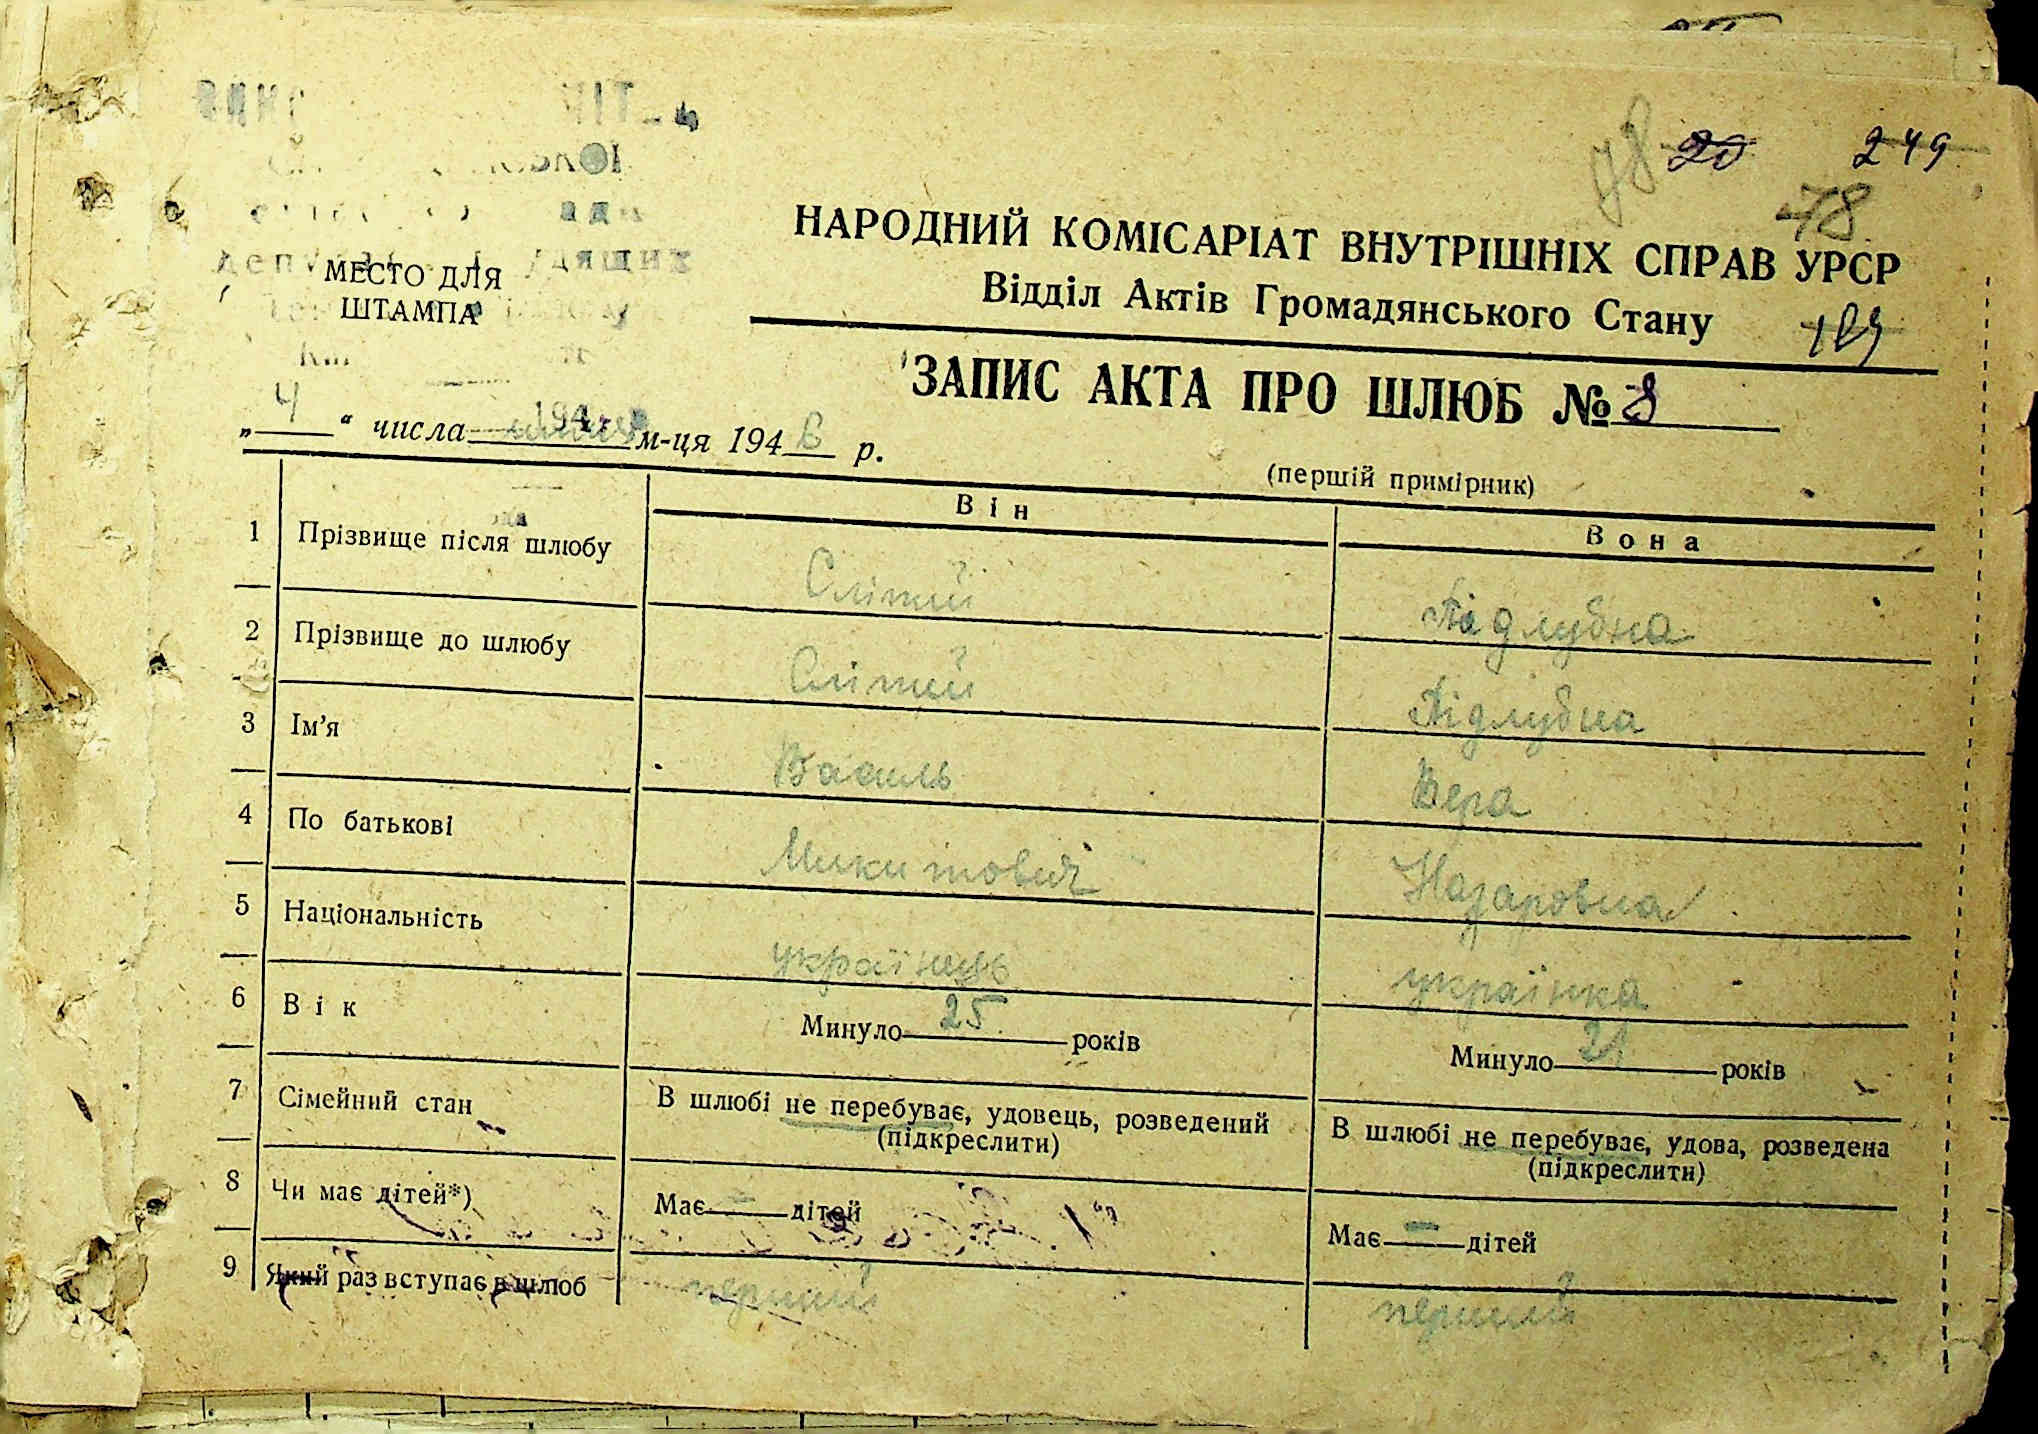 78 20 249
78
НАРОДНИЙ КОМІСАРІАТ ВНУТРІШНІХ СПРАВ УРСР
Відділ Актів Громадянського Стану
189
МЕСТО ДЛЯ
ШТАМПА
ЗАПИС АКТА ПРО ШЛЮБ № 8
„ 4 “ числа м-ця 194 6 р.
(першій примірник)
Він Вона
1 Прізвище після шлюбу Сліпий Підлубна
2 Прізвище до шлюбу Сліпий Підлубна
3 Ім’я Василь Вера
4 По батькові Микитович Назаровна
5 Національність українець українка
6 Вік Минуло 25 років Минуло 21 років
7 Сімейний стан В шлюбі не перебуває, удовець, розведений (підкреслити) В шлюбі не перебуває, удова, розведена (підкреслити)
8 Чи має дітей*) Має — дітей Має — дітей
9 Який раз вступає в шлюб перший перший